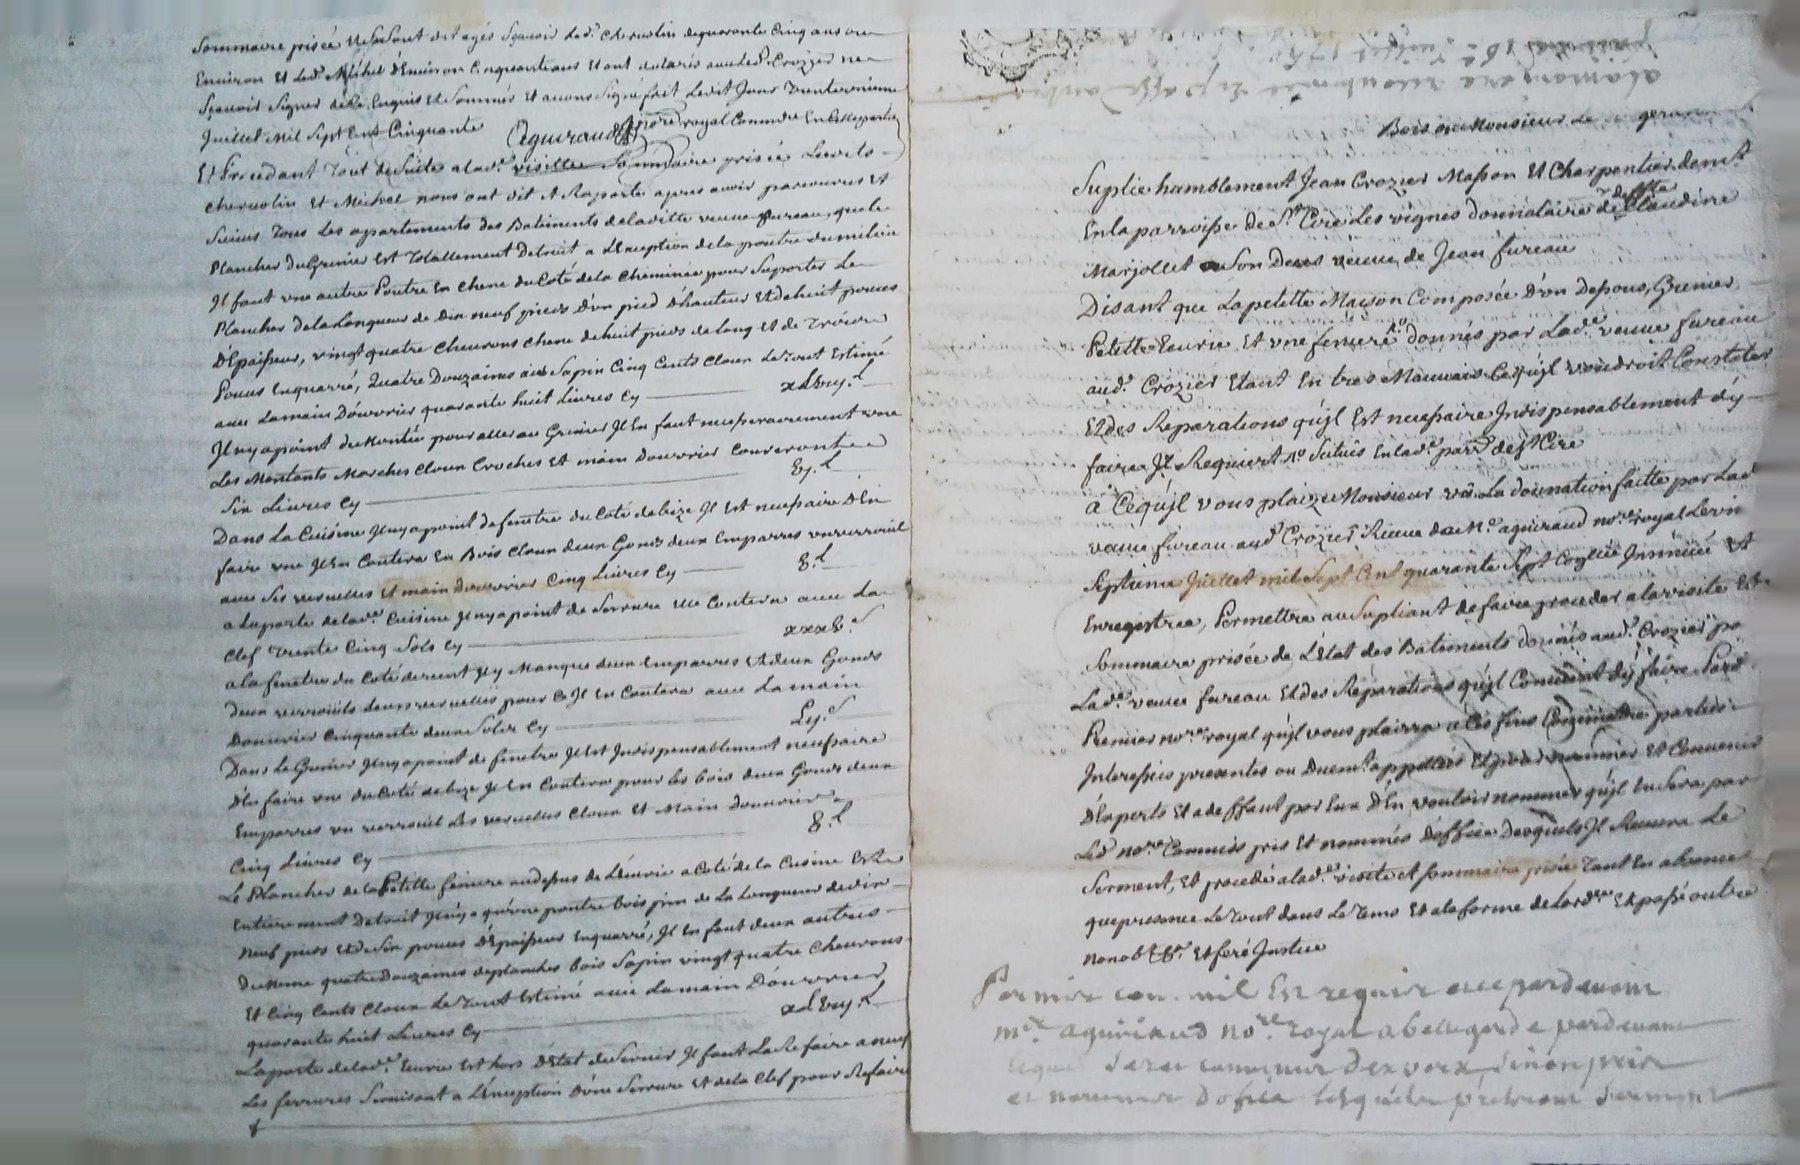 Sommaire prisée Et se sont dit agés Sçavoir Led.t Cheruolin de quarante Cinq ans ou
Environ Et Led.t Michel d'Environ Cinquante ans Et ont declaré avec led.t Crozier ne
Sçavoir Signer de Ce Enquis Et Sommés Et avons Signé fait Ledit Jour Trente unieme
Juillet Mil Sept Cent Cinquante Aguiraud nore royal Commdre En Cette partie
Et Procedant Tout de Suite a lad.e visitte Sommaire prisée Lesdits
Cheruolin Et Michel nous ont dit Et Raporté apres avoir parcourus Et
Suivis Tous Les apartements des Batiments de laditte veuve fureau, que le
Plancher du Grenier Est Totallement Detruit a L'Exception de la poutre du milieu
Il faut une autre Poutre En chene du Coté de la Cheminée pour Suporter Le
Plancher de la Longueur de Dix neuf pieds d'un pied d'hauteur Et de huit pouces
D'Epaisseur, vingt quatre Cheuvrons chene de huit pieds de long Et de Trois
Pouces Enquarré, Quatre Douzaines ais Sapin Cinq Cents Cloux Le Tout Estimé
avec La main D'ouvrier quarante huit Livres Cy xlviij.l
Il ny a point de Montée pour aller au Grenier Il En faut necessairement une
Les Montants Marches Cloux Croches Et main D'ouvrier Couteront
Six Livres Cy vj.l
Dans La Cuisine Il ny a point de fenetre du Coté de bize Il Est necessaire d'En
faire une Il En Coutera En Bois Cloux deux Gonds deux Emparres un verrouil
avec Ses vervelles Et main D'ouvrier Cinq Livres Cy 5.l
a La porte de lad.e Cuisine Il ny a point de Serrure Elle Coutera avec La
Clef Trente Cinq Sols Cy xxxv.s
a la fenetre du Coté de vent Il y Manque deux Emparres Et deux Gonds
Deux verrouils deux vervelles pour Ce Il En Coutera avec La main
D'ouvrier Cinquante deux Sols Cy Lij.s
Dans Le Grenier Il ny a point de fenetre Il Est Indispensablement necessaire
d'En faire une du Coté de bize Il En Coutera pour les bois deux Gonds deux
Emparres un verrouil Les vervelles Cloux Et Main D'ouvrier
Cinq Livres Cy 5.l
Le Plancher de la Petitte feniere au dessus de L'Ecurie a Coté de la Cuisine Est
Entierement Detruit Il ny a qu'une poutre bois pin de La Longueur de dix
Neuf pieds Et de Six pouces D'Epaisseur Enquarré, Il En faut deux autres
De même quatre Douzaines de planches bois Sapin vingt quatre Cheuvrons
Et Cinq Cents Cloux Le Tout Estimé avec La main D'ouvrier
quarante huit Livres Cy xlviij.l
La porte de lad.e Ecurie Est hors d'Etat de Servir Il faut La Refaire a neuf
Les ferrures Serviront a L'Exception d'une Serrure Et de la Clef pour Refaire
16e Juillet 1750
Bois ou Monsieur Le
Suplie humblement Jean Crozier Masson Et Charpentier dem.t
En la parroisse de S.t Cire Les vignes donnataire de deffte Claudine
Marjollet Son Deces veuve de Jean fureau
Disant que La petitte Maison Composée d'un Dessous, Grenier,
Petitte Ecurie Et une feniere donnés par Lad.e veuve fureau
aud.t Crozier Etant En tres Mauvais Ce qu'il voudroit Constater
Et des Reparations qu'il Est necessaire Indispensablement d'y
faire Il Requiert Scitués En lad.e parr.e de St Cire
à Cequ'il vous plaize Monsieur vû La donnation faitte par Lad
veuve fureau aud.t Crozier Receue de M.e aguiraud no.re royal Le vin
Septieme Juillet mil Sept Cent quarante Sept Collée Insinuée Et
Enregistrée, Permettre au Supliant de faire proceder a la visite Et
Sommaire prisée de L'état des Batiments donnés aud.t Crozier pr
Lad.e veuve fureau Et des Reparations qu'il Convient d'y faire Pard
Premier no.re royal qu'il vous plairra a Ces fins Commettre parties
Interessées presentes ou Duem.t appellées Et pour nommer Et Convenir
d'Experts Et a deffaut par Eux d'En vouloir nommer qu'il En Sera par
Led no.re Commis pris Et nommés d'office Desquels Il Recevra Le
Serment, Et procedé a lad.e visite et sommaire prisée Tant En absence
que presence Le Tout dans Le Tems Et a la forme de Lord.ce Et passé outre
nonobst.t Et feré Justice
Permis com. Est requis pardevant
m.re aguiraud no.re royal a bellegarde pardevant
lequel Sera convenu Dexperts Sinon pris
et nommés Dofice lesquels preteront Serment